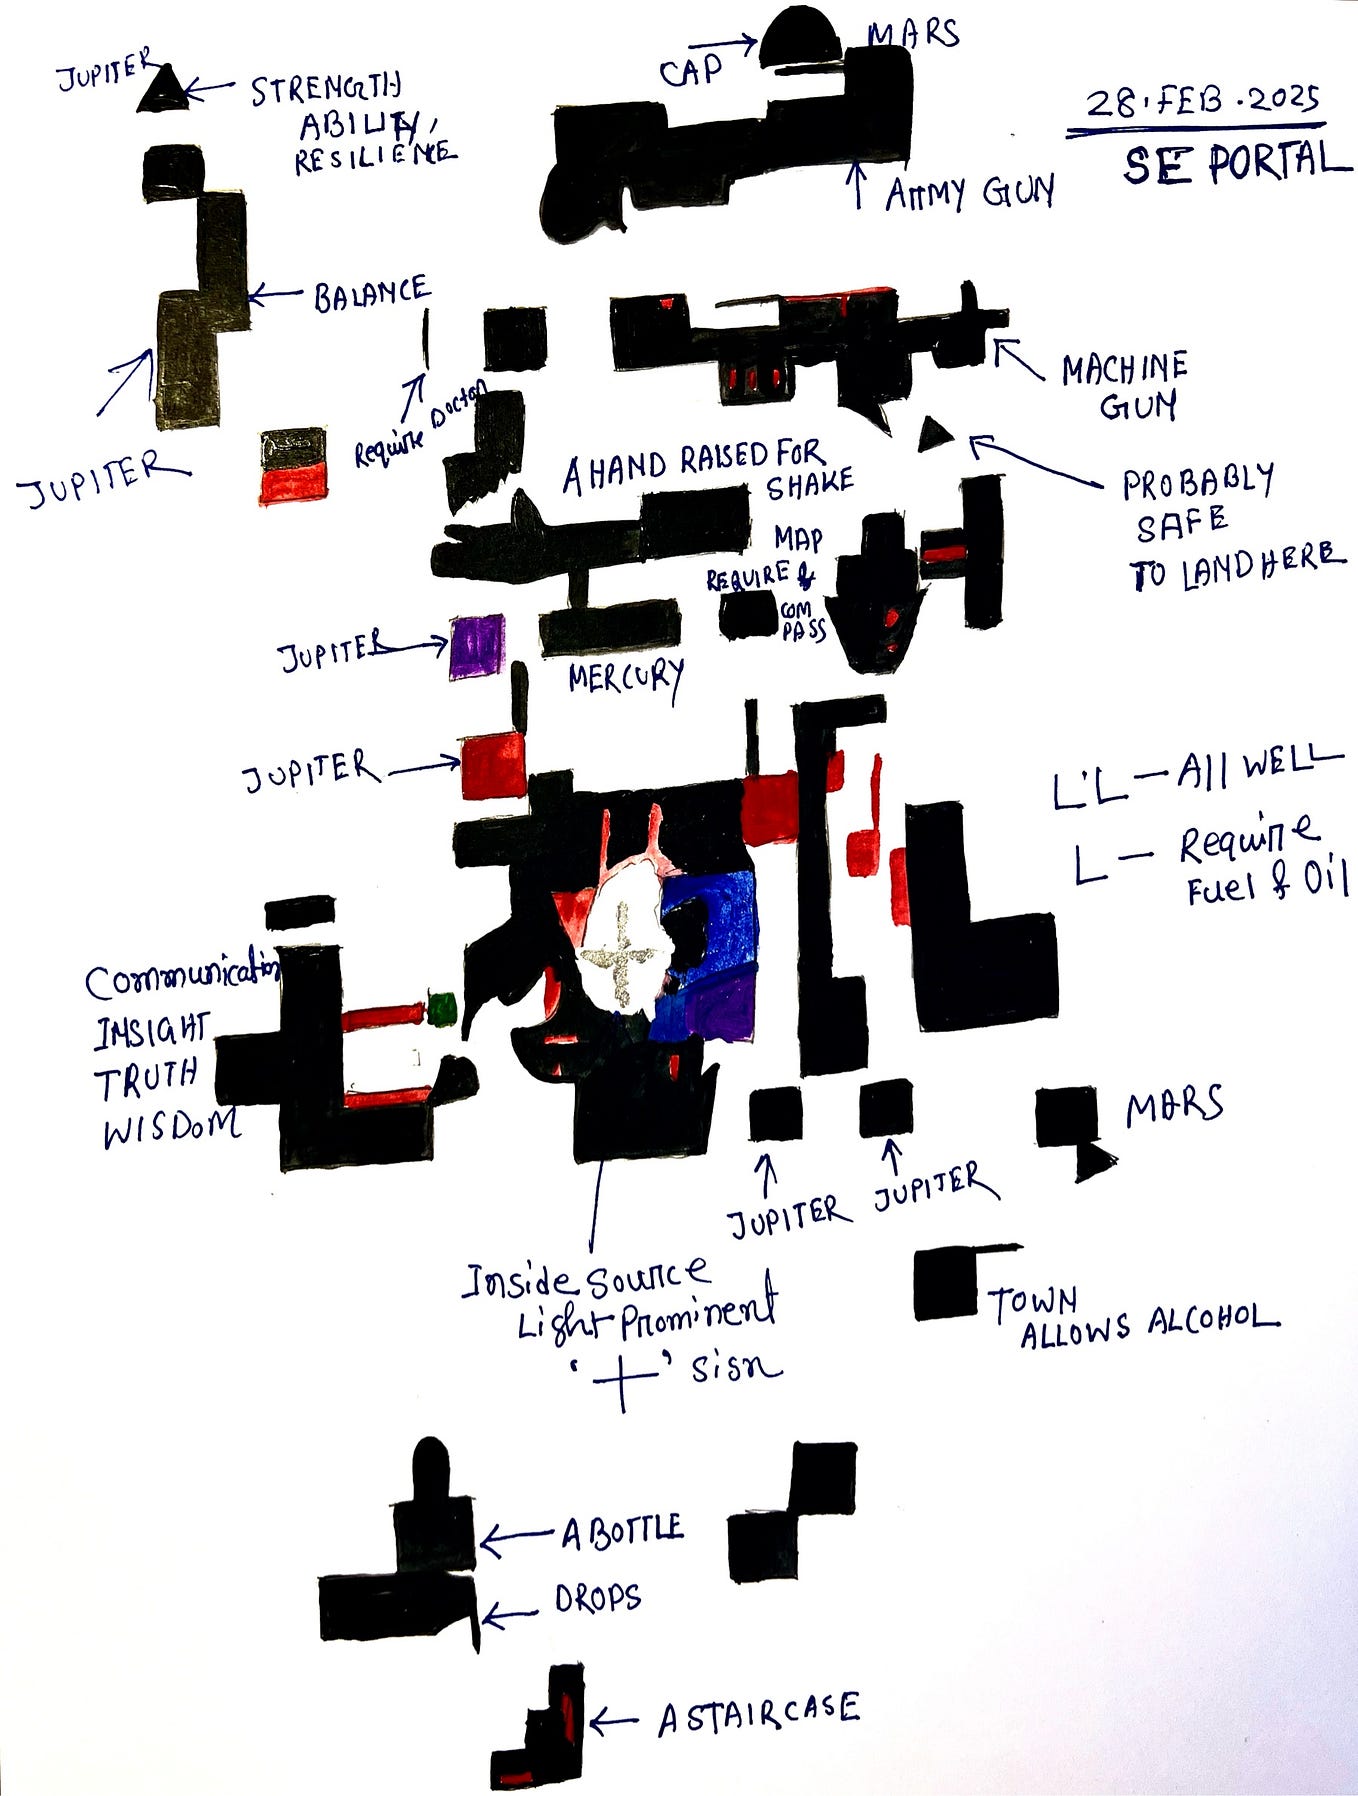 JUPITER
STRENGTH
ABILITY,
RESILIENCE
CAP
MARS
28.FEB.2025
SE PORTAL
ARMY GUN
BALANCE
Require Doctor
MACHINE
GUN
JUPITER
A HAND RAISED FOR
SHAKE
PROBABLY
SAFE
TO LAND HERE
MAP
REQUIRE &
COM
PASS
JUPITER
MERCURY
JUPITER
L'L - All WELL
L - Require
Fuel & Oil
Communication
INSIGHT
TRUTH
WISDOM
MARS
JUPITER
JUPITER
Inside Source
Light Prominent
'+' Sign
TOWN
ALLOWS ALCOHOL
A BOTTLE
DROPS
A STAIRCASE